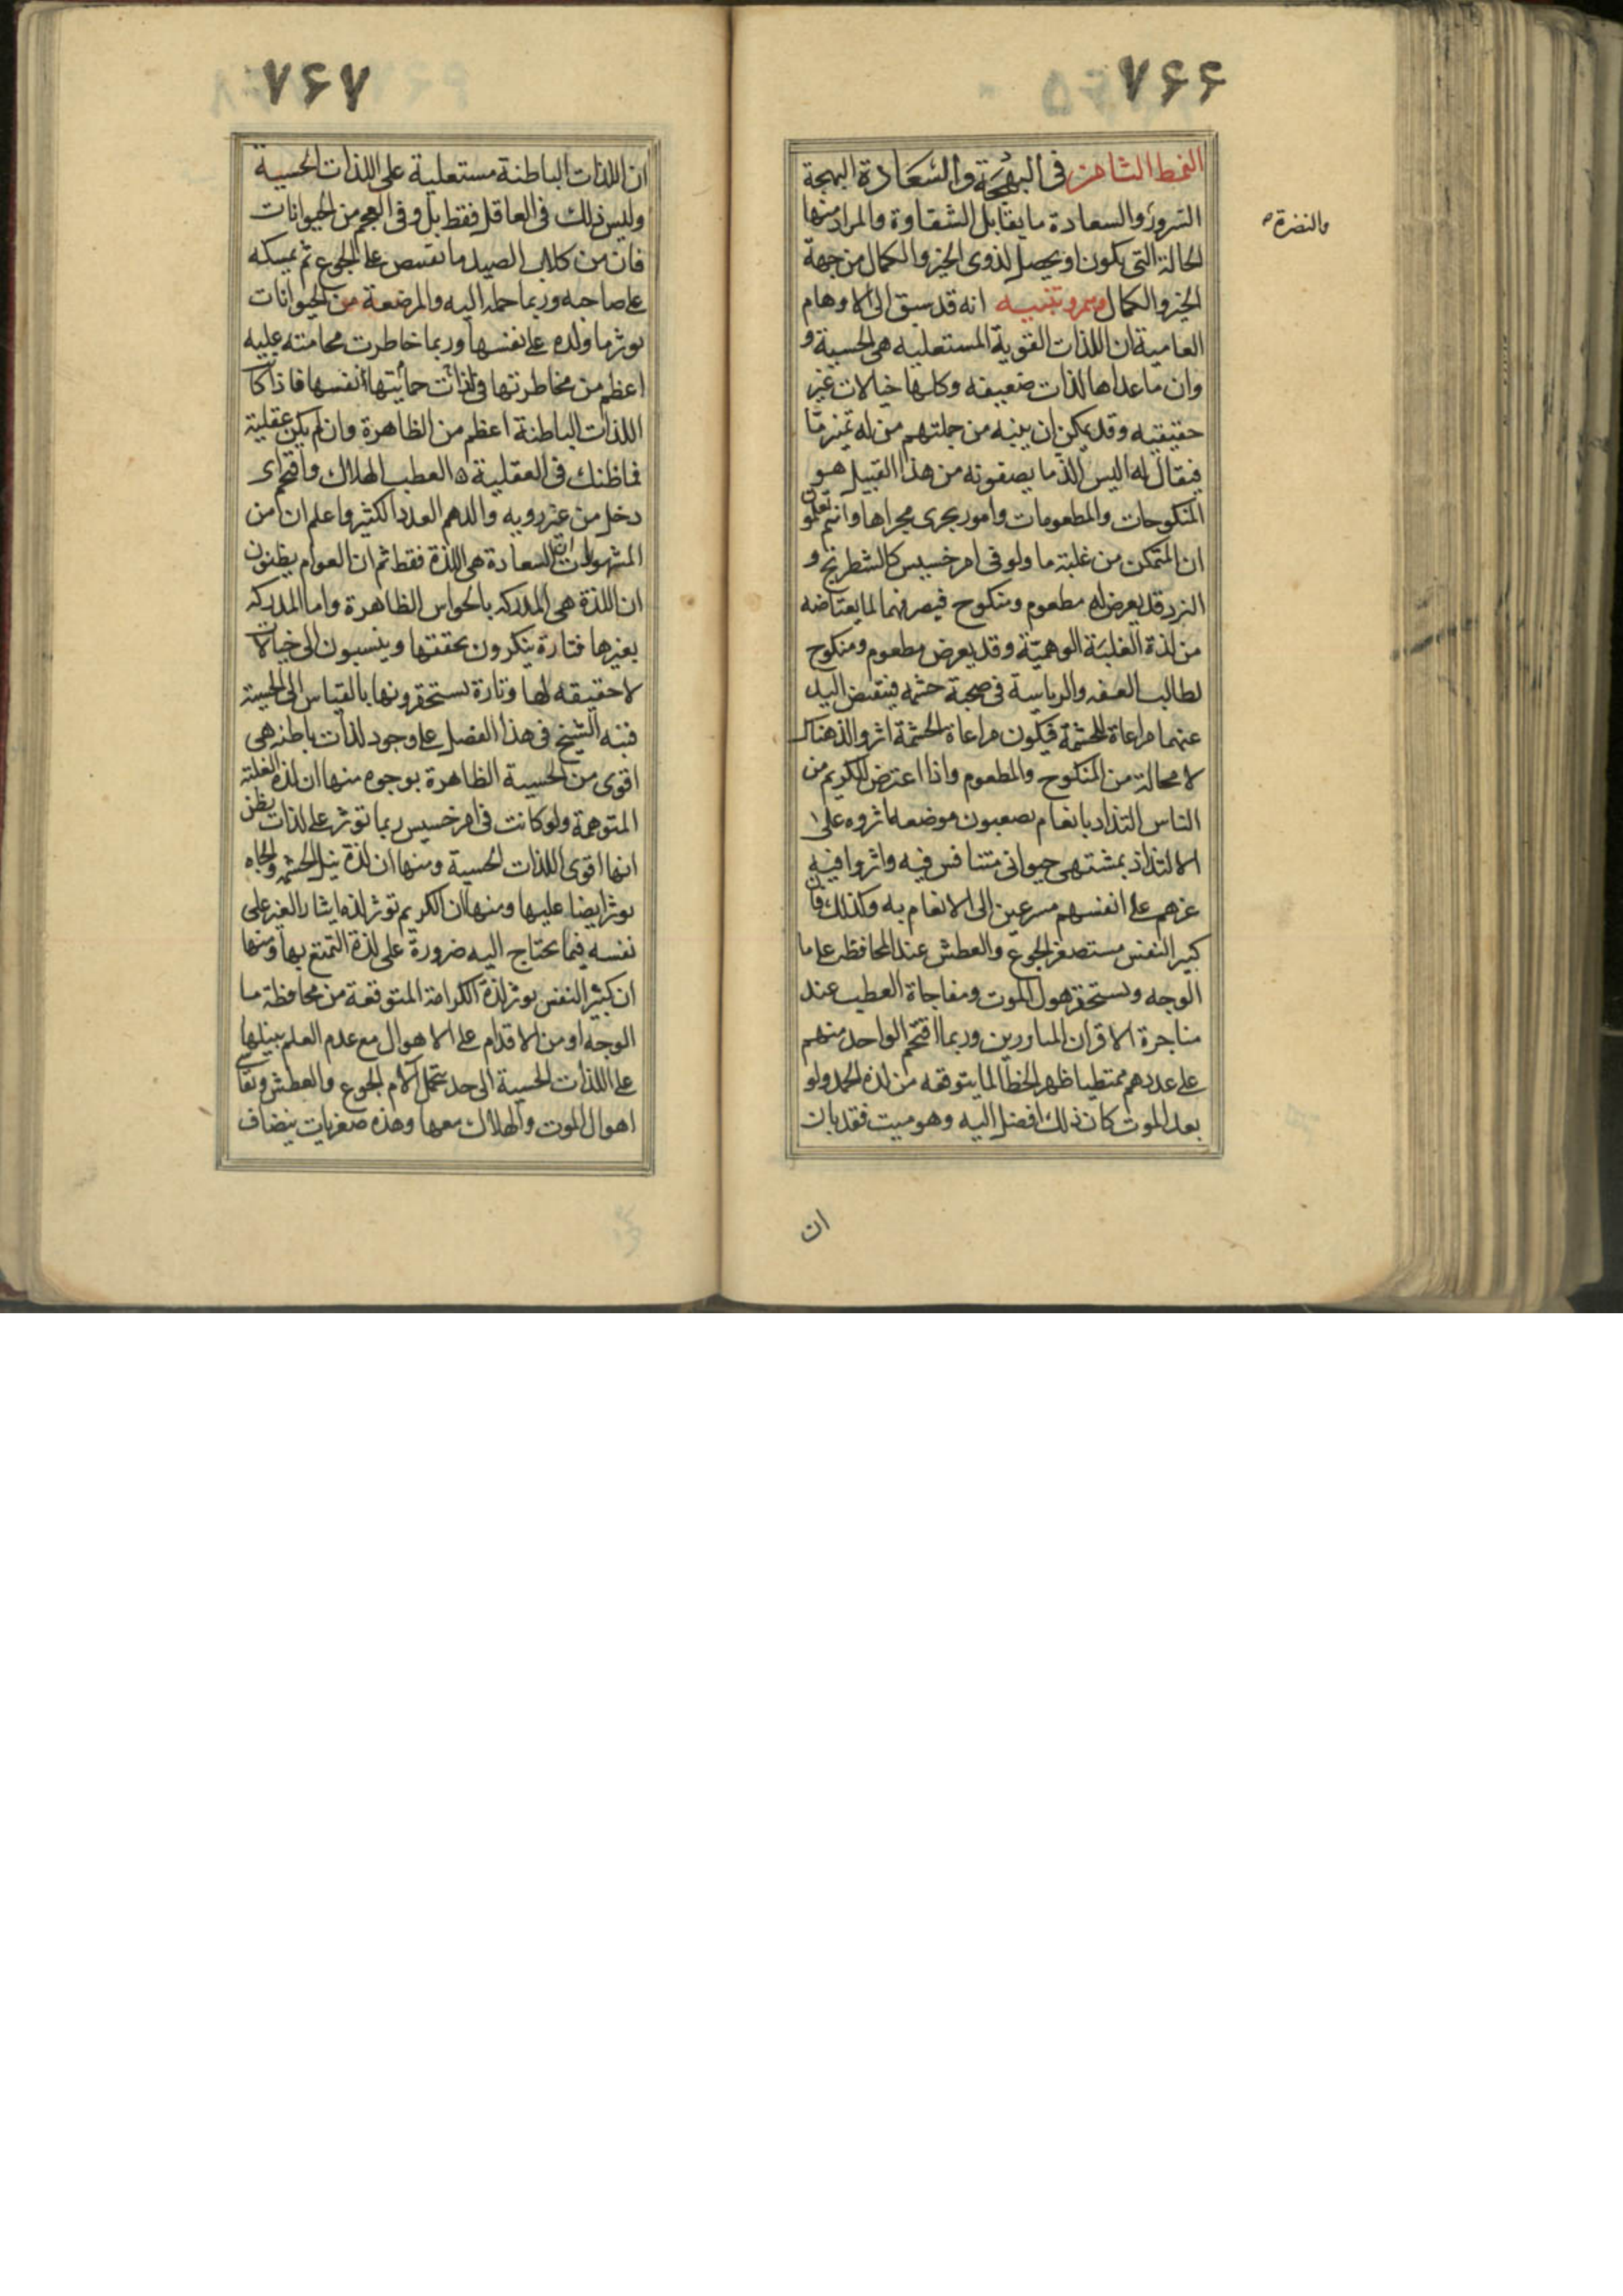 ۷۶۶
النمط الثامن فى البهجة والسعادة البهجة
السرور والسعادة ما يقابل الشقاوة والمراد منها
والنضرة
الحالة التى يكون او يحصل لذوى الخير والكمال من جهة
الخير والكمال وهم وتنبيه انه قد سبق الى الاوهام
العامية ان اللذات القوية المستعلية هى الحسية و
وان ما عداها لذات ضعيفة وكلها خيالات غير
حقيقيه وقد يمكن ان ينبه من جملتهم من له تميز ما
فيقال له اليس الذ ما يصفونه من هذا القبيل هو
المنكوحات والمطعومات وامور يجرى مجراها وانتم تعلمون
ان المتمكن من غلبة ما ولو فى امر خسيس كالشطرنج و
النرد قد يعرض له مطعوم ومنكوح فيرفضهما لما يعتاضه
من لذة الغلبة الوهمية وقد يعرض مطعوم ومنكوح
لطالب العفه والرياسة فى صحبة حشمه فينقبض اليد
عنهما مراعاة للحشمة فيكون مراعاة الحشمة اثر والذ هناك
لا محالة من المنكوح والمطعوم واذا اعترض للكريم من
الناس التذاذ بانعام يصيبون موضعه اثروه على ا
الالتذاذ بمشتهى حيوانى متنافس فيه واثروا فيه
غيرهم على انفسهم مسرعين الى الانعام به وكذلك فان
كبير النفس مستصغر الجوع والعطش عند المحافظه على ما
الوجه ويستحقر هول الموت ومفاجاة العطب عند
مناجزة الاقران المبارزين وربما اقتحم الواحد منهم
على عدد هم ممتطيا ظهر الخطر لما يتوقعه من لذه الحمد ولو
بعد الموت كان ذلك افضل اليه وهو ميت فقد بان
ان
۷۶۷
ان اللذات الباطنة مستعلية على اللذات الحسية
وليس ذلك فى العاقل فقط بل وفى العجم من الحيوانات
فان من كلاب الصيد ما تقتنص على الجوع ثم يمسكه
على صاحبه وربما حمله اليه والمرضعة من الحيوانات
توثر ما ولده على نفسها وربما خاطرت محامئه عليه
اعظم من مخاطرتها فى ذات حمايتها انفسها فاذا كانت
اللذات الباطنة اعظم من الظاهرة وان لم يكن عقلية
فما ظنك فى العقلية ه العطب الهلاك واقتحم اى
دخل من غير رويه والدهم العدد الكثير واعلم ان من
المشهورات ان السعادة هى اللذة فقط ثم ان العوام يظنون
ان اللذة هى المدركه بالحواس الظاهرة واما المدركه
بغيرها فتارة ينكرون بحققها وينسبون الى خيالات
لا حقيقه لها وتارة يستحقرونها بالقياس الى الحسية
فنبه الشيخ فى هذا الفصل على وجود لذات باطنه هى
اقوى من الحسية الظاهرة بوجوه منها ان لذة الغلبة
المتوهمة ولو كانت فى امر خسيس ربما توثر على لذات يظن
انها اقوى اللذات الحسية ومنها ان لذة نيل الحشمه والجاه
يوثر ايضا عليها ومنها ان الكريم توثر لذه ايثار الغير على
نفسه فيما يحتاج اليه ضرورة على لذة التمتع بها ومنها
ان كبير النفس يوثر لذة الكرامة المتوقعة من محافظة ما
الوجه او من الاقدام على الاهوال مع عدم العلم بنيلها
على اللذات الحسية الى حد يتحمل الام الجوع والعطش وتقاسى
اهوال الموت والهلاك معها وهذه صغريات ينضاف